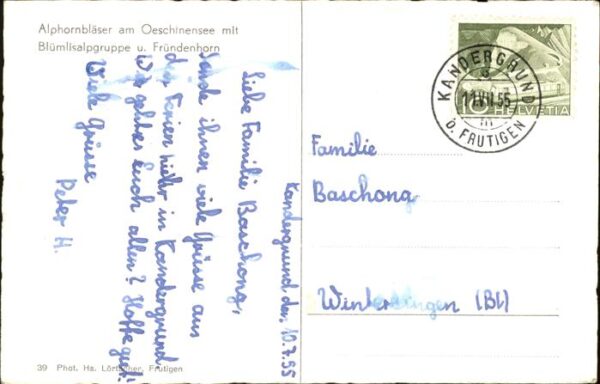 Alphornbläser am Oeschinensee mit
Blümlisalpgruppe u. Fründenhorn
Kandergrund den 10.7.55
Liebe Familie Baschong,
Sende ihnen viele Grüsse aus
den Ferien hier in Kandergrund
Wie geht es Euch allen? Hoffe gut!
Viele Grüsse
Peter H.
KANDERGRUND
11.VII.55
b. FRUTIGEN
10 HELVETIA
Familie
Baschong
Wintersingen (Bl)
39 Phot. Hs. Lörtscher, Frutigen